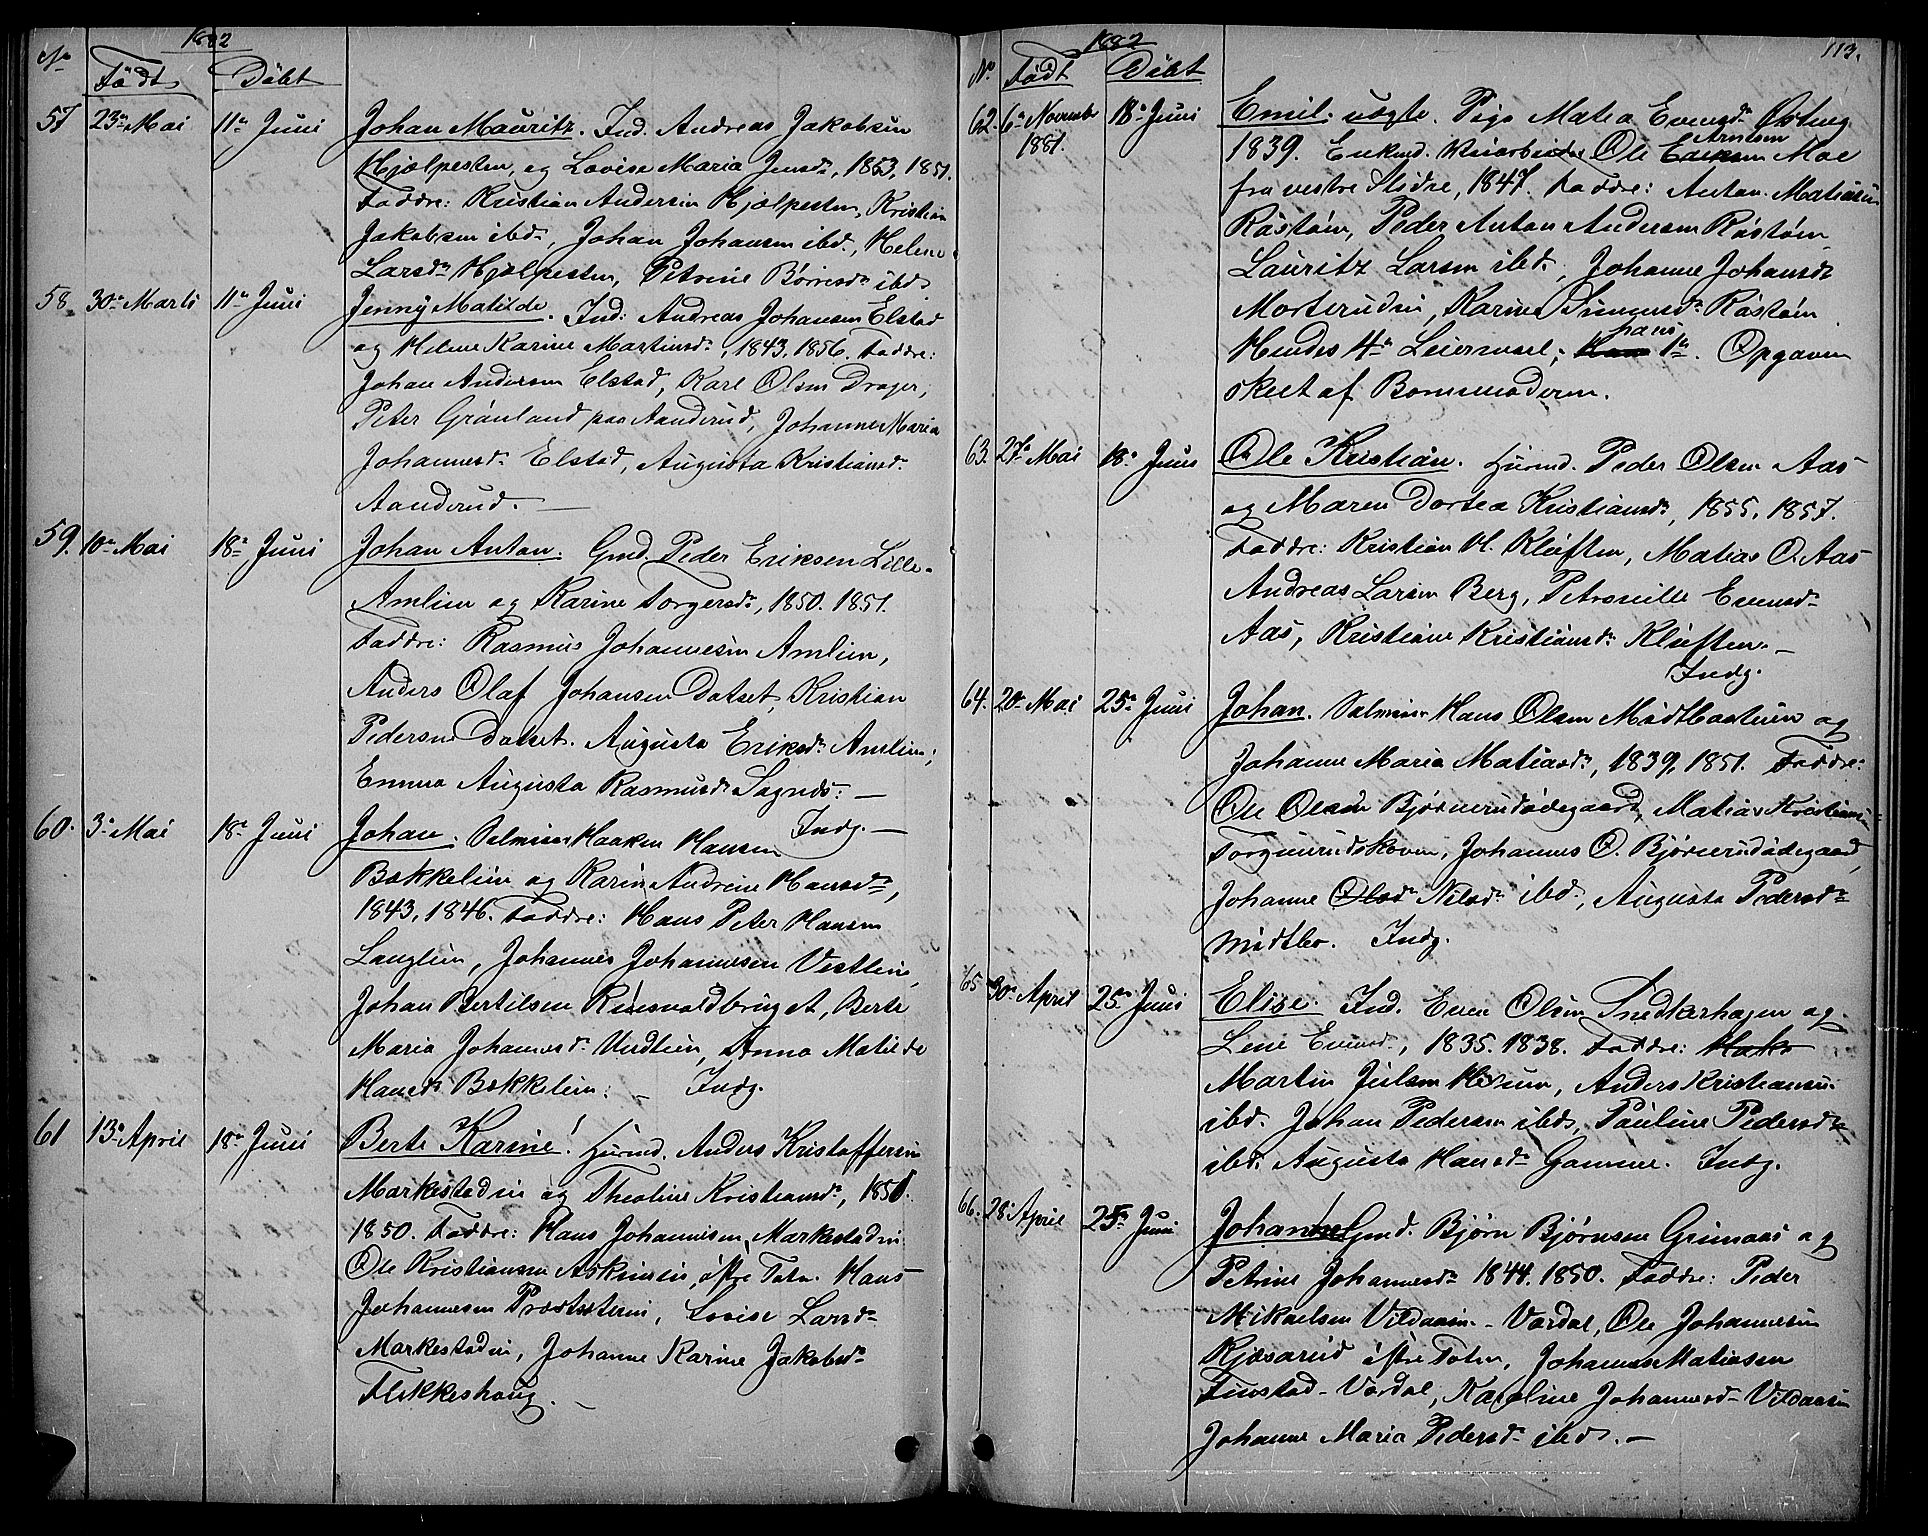 1882
No Födt Döbt
57 23de Mai 11te Juni Johan Mauritz. Ind. Andreas Jakobsen
Hjælpesten, og Lovise Maria Jensdr, 1853, 1851.
Faddre: Kristian Andersen Hjælpesten, Kristian
Jakobsen ibd., Johan Johansen ibd., Helene
Larsdr Hjælpesten, Petrine Börresdr ibd.
58. 30te Marts 11te Juni Jenny Matilde. Ind: Andreas Johansen Elstad
og Helene Karine Martinsdr, 1843, 1856. Faddre:
Johan Andersen Elstad, Karl Olsen Drager,
Peter Grönland paa Aanderud, Johanne Maria
Johannesdr Elstad, Augusta Kristiansdr
Aanderud. —
59. 10de Mai 18de Juni Johan Anton. Gmd. Peder Eriksen Lille-
Amlien og Karine Torgersdr, 1850. 1851.
Faddre: Rasmus Johannesen Amlien,
Anders Olaf Johansen Datset, Kristian
Pedersen Datset. Augusta Eriksdr Amlien;
Emma Augusta Rasmusdr Sognes: —
Indg. —
60. 3de Mai 18de Juni Johan. Selveier Haaken Hansen
Bækkelien og Karen Andrine Hansdr,
1843, 1846. Faddre: Hans Peter Hansen
Langlien, Johannes Johannesen Vestlien,
Johan Bertilsen Ruusvoldbruget, Berte
Maria Johannesdr Vestlien, Anna Matilde
Hansdr Bækkelien: — Indg.
61 13de April 18de Juni Berte Karine! Husmd. Anders Kristoffersen
Markestadeie og Theoline Kristiansdr, 1851.
1850. Faddre: Hans Johannesen Markestadeie
Ole Kristiansen Askimeie, östre Toten. Hans
Johannesen Præsteseteie, Lovise Larsdr
Markestadeie, Johanne Karine Jakobsdr
Flikkeshaug. —
1882 113.
No Födt Döbt
62. 6te Novembr 18de Juni Emil. uægte. Pige Matea Evensdr Östeng
1881. 1839. Enkemd. Veiarbeider Ole Arnesen Moe
fra vestre Slidre, 1847. Faddre: Anton Matiasen
Röstöen, Peder Anton Andersen Röstöen
Lauritz Larsen ibd., Johanne Johansdr
Morterudeie, Karine Simensdr Röstöen
Hendes 4de Leiermaal; hans 1ste. Opgaven
skeet af Barnemoderen.
63. 27de Mai 18de Juni Ole Kristian. Husmd. Peder Olsen Aas
og Maren Dortea Kristiansdr, 1855, 1857.
Faddre: Kristian H. Klüften, Matias O. Aas
Andreas Larsen Berg, Petronille Evensdr
Aas, Kristiane Kristiansdr Klüften. —
Indg.
64. 20de Mai 25de Juni Johan. Selveier Hans Olsen Midtbostuen og
Johanne Maria Matiasdr, 1839, 1851. Faddre:
Ole Olsen Björnerudödegaard, Matias Kristiansen
Torgunrudskoven, Johannes O. Björnerudödegaard,
Johanne Olsdr Nilsdr ibd., Augusta Pedersdr
Midtbo. Indg.
65 30te April 25de Juni Elise. Ind. Even Olsen Snedkerhagen og
Lene Evensdr, 1835. 1838. Faddre:
Martin Julsen, Anders Kristiansen
ibd. Johan Pedersen ibd., Pauline Pedersdr
ibd. Augusta Hansdr Gamme. Indg.
66. 28de April 25de Juni Johanne Gmd. Björn Björnsen Grimaas og
Petrine Johannesdr 1844. 1850. Faddre: Peder
Mikaelsen Vildaasen - Vardal, Ole Johannesen
Kjøsarud östre Toten, Johannes Matiasen
Finstad - Vardal, Karoline Johannesdr Vildaasen
Johanne Maria Pedersdr ibd. —